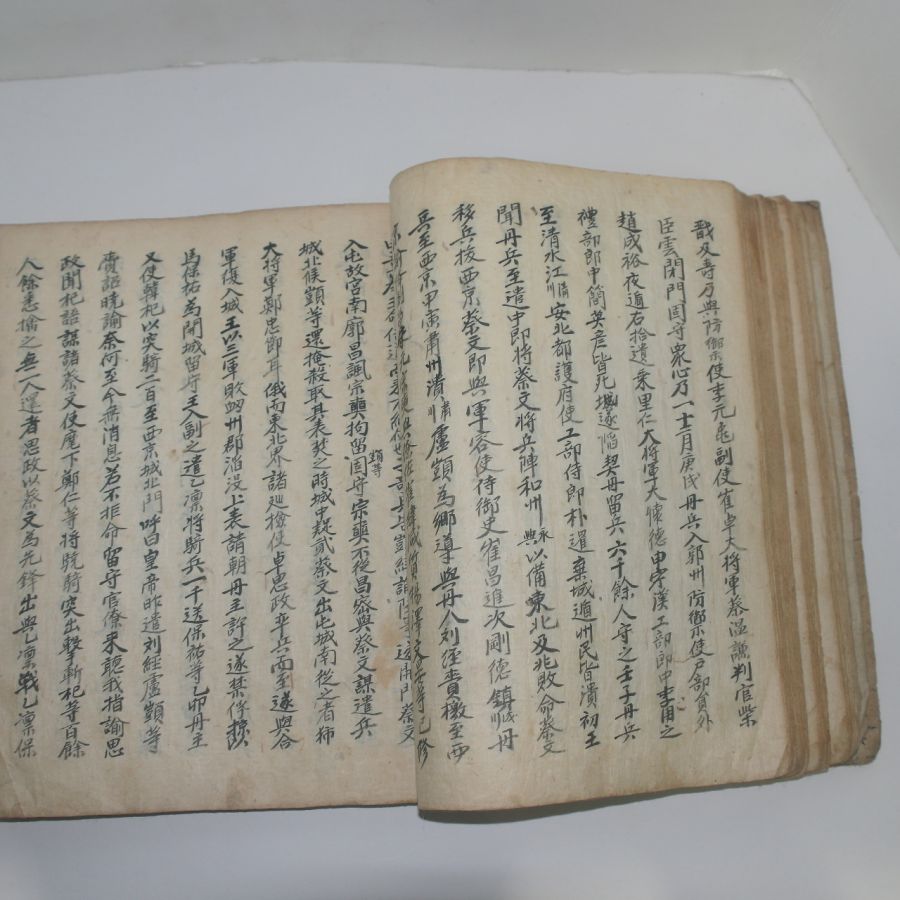 戩及壽乃與防禦使李元龜副使崔卓大將軍蔡溫謙判官柴
臣雲閉門固守衆心乃一十二月庚戌丹兵入郭州防禦使戶部員外
趙成裕夜遁右拾遺乘里仁大將軍大懷德申寧漢工部郎中李甫之
禮部郎中簡英彦皆死城遂陷契丹留兵六千餘人守之壬子丹兵
至清水江安北都護府使工部侍郎朴暹棄城遁州民皆潰初王
聞丹兵至遣中郎將蔡文將兵陣和州以備東北及兆敗命蔡文
移兵援西京蔡文即與軍容使侍御史崔昌進次剛德鎮丹
兵至西京甲寅肅州潰盧顗爲鄉導與丹人刘經賫檄至西
入屯故宮南廓昌諷宗奭拘留顗等固守宗奭不從昌密與蔡文謀遣兵
城北候顗等還掩殺取其表焚之時城中疑貳蔡文出屯城南從之者
大將軍鄭忠節耳俄而東北界諸巡檢使卓思政率兵而至遂與合
軍復入城王以三軍敗衂州郡陷沒上表請朝丹主許之遂禁俘
馬保祐爲開城留守王八副之遣乙凛將騎兵一千送保祐等乙卯丹主
又使韓杞以突騎二百至西京城北門呼曰皇帝昨遣刘經盧顗等
賫詔曉諭奈何至今無消息若不拒命留守官僚來聽我指諭思
政聞杞語謀諸蔡文使麾下鄭仁等將驍騎突出擊斬杞等百餘
人餘悉擒之無一人還者思政以蔡文爲先鋒出與乙凛戰乙凛保